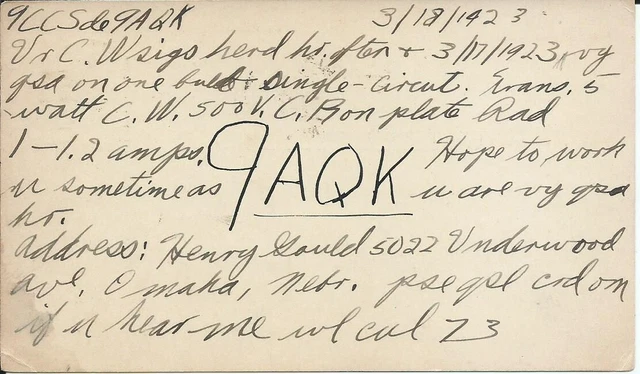 9CCS de 9AQK 3/18/1923
Ur C.W sigs herd hr. often + 3/17/1923, vy
qsa on one bulb + single-circut. Trans. 5
watt C.W. 500 V. C. R on plate Rad
1-1.2 amps. Hope to work
u sometime as 9AQK u are vy qsa
hr.
address: Henry Gould 5022 Underwood
ave, Omaha, Nebr. pse qsl crd om
if u hear me wl cul 73